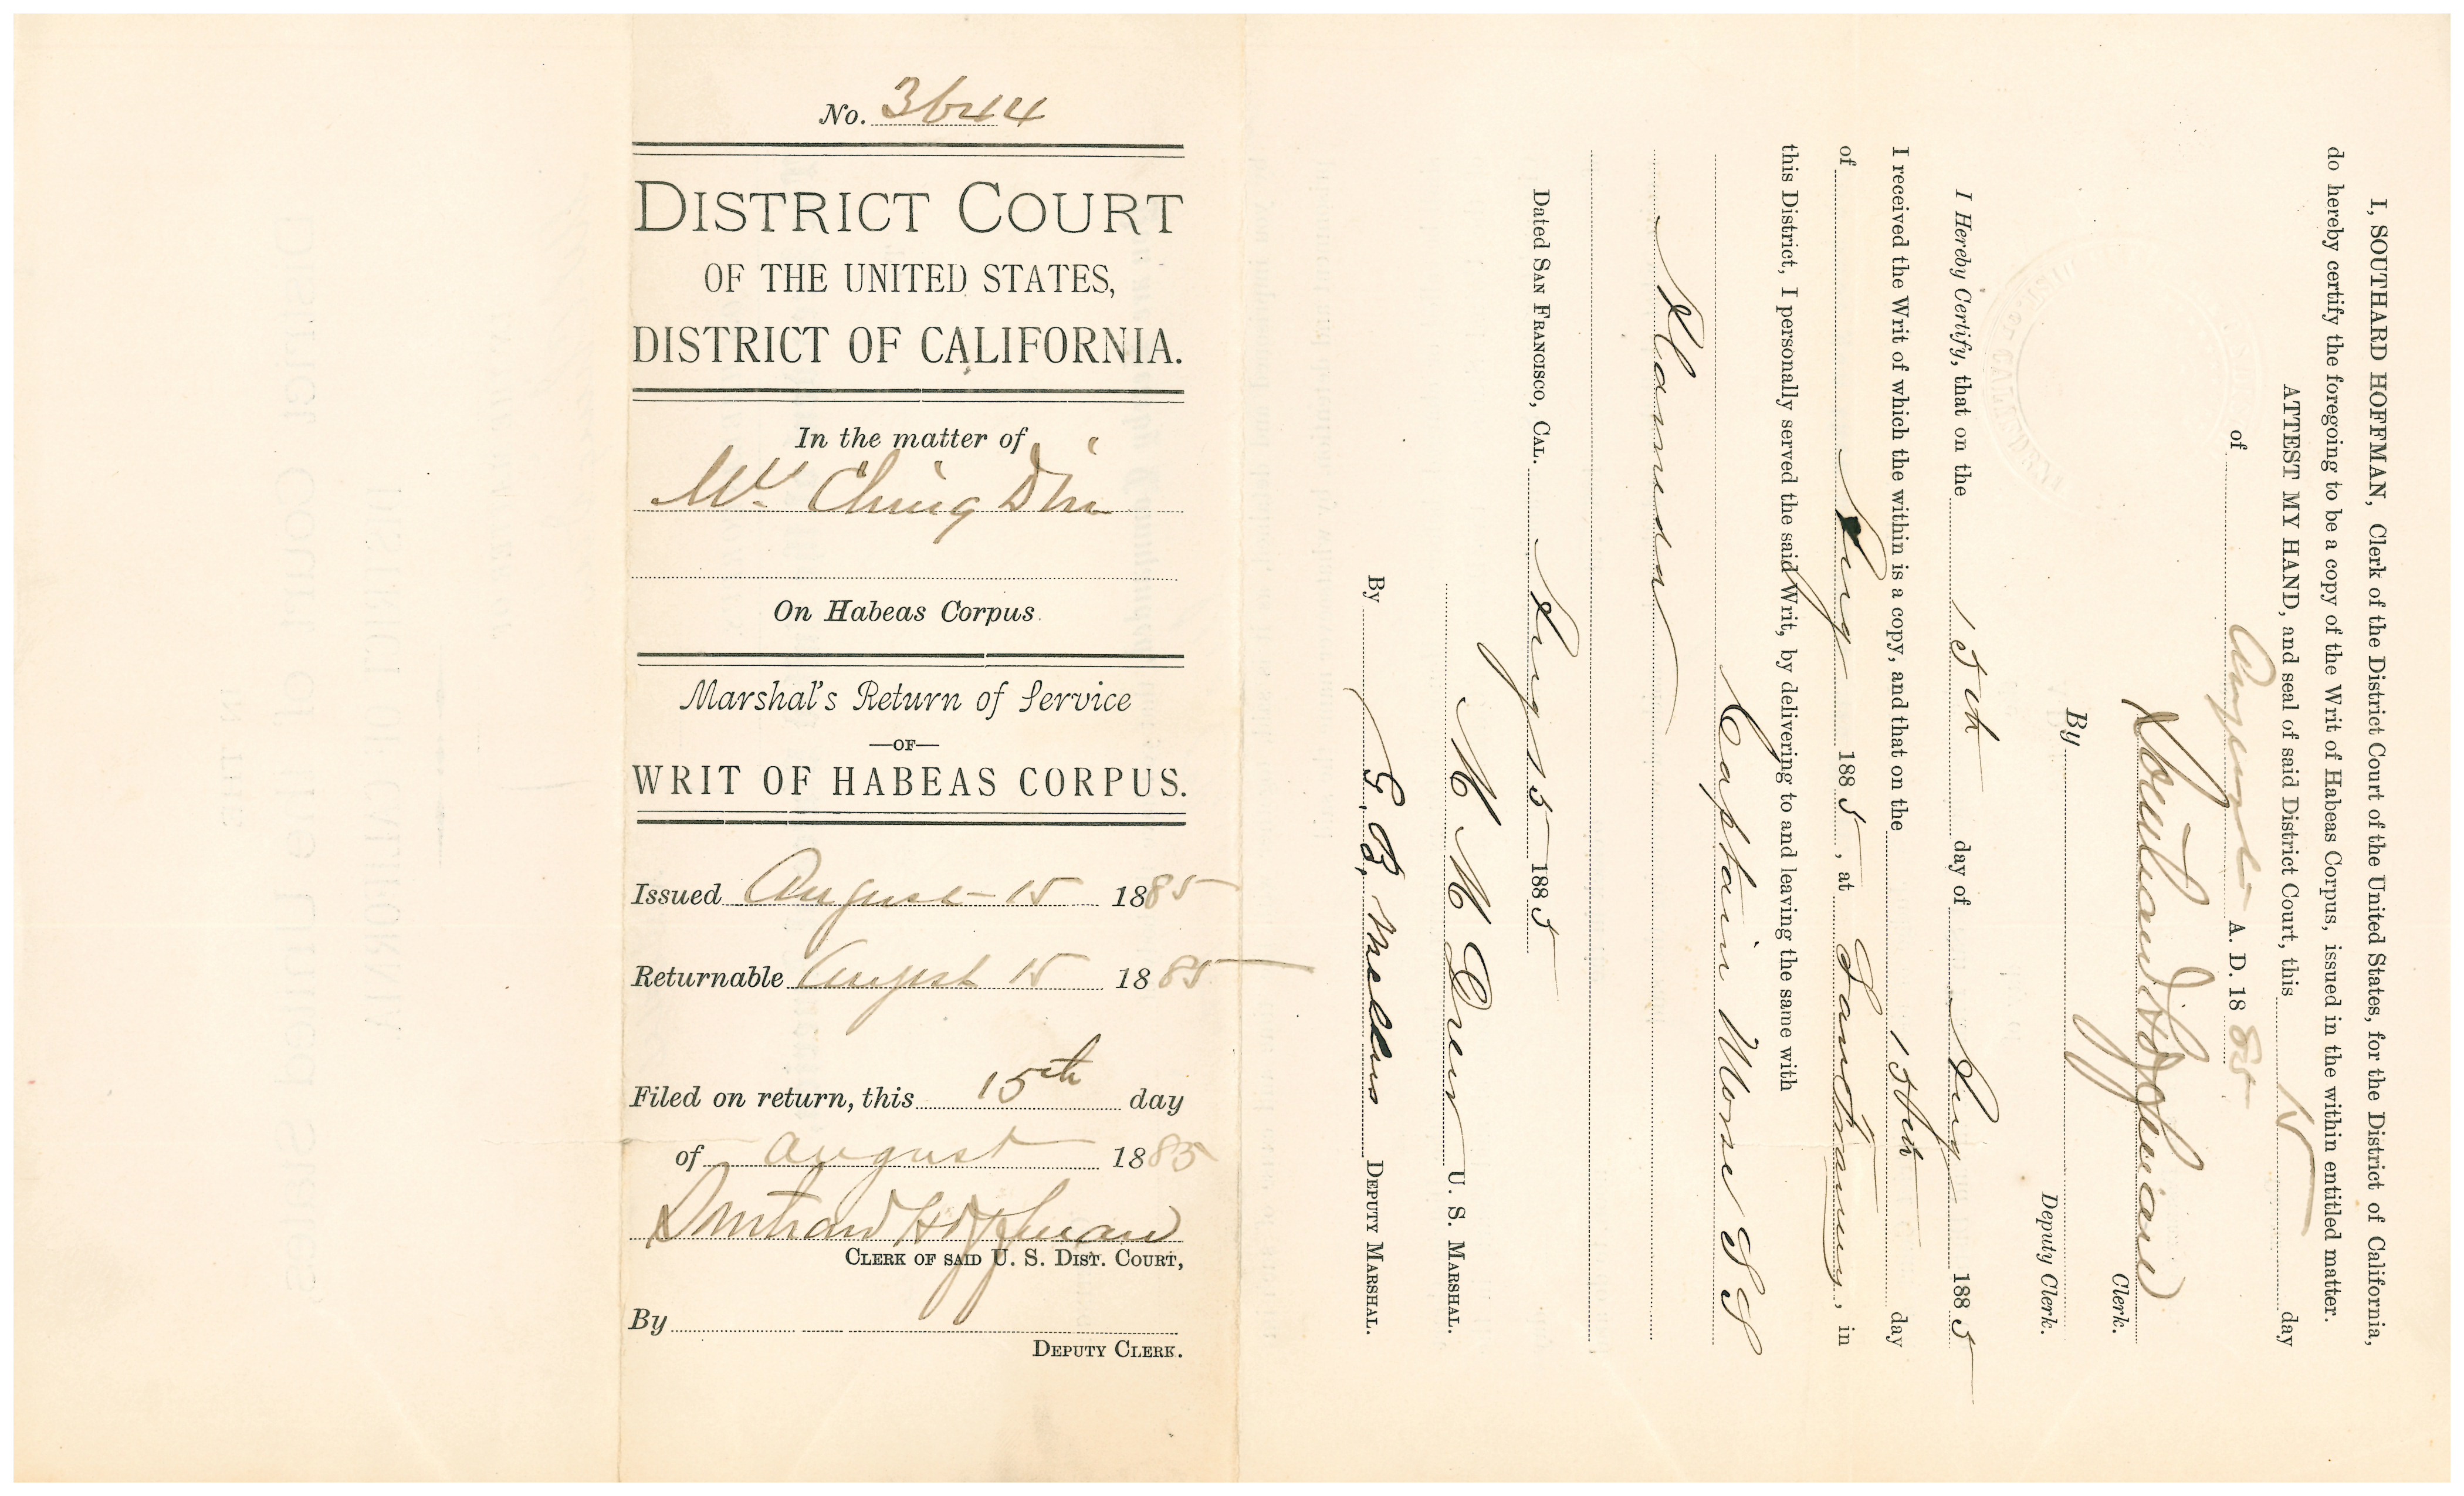 No. 3644
DISTRICT COURT
OF THE UNITED STATES,
DISTRICT OF CALIFORNIA.
In the matter of
Ching
On Habeas Corpus.
Marshal's Return of Service
—OF—
WRIT OF HABEAS CORPUS.
Issued August 15 1885
Returnable August 15 1885
Filed on return, this 15th day
of August 1885
Southard Hoffman
CLERK OF SAID U. S. DIST. COURT,
By
DEPUTY CLERK.
I, SOUTHARD HOFFMAN, Clerk of the District Court of the United States, for the District of California,
do hereby certify the foregoing to be a copy of the Writ of Habeas Corpus, issued in the within entitled matter.
ATTEST MY HAND, and seal of said District Court, this 15 day
of August A. D. 1885
Southard Hoffman
Clerk.
By
Deputy Clerk.
I Hereby Certify, that on the 15th day of Aug 1885
I received the Writ of which the within is a copy, and that on the 15th day
of Aug 1885, at , in
this District, I personally served the said Writ, by delivering to and leaving the same with
Captain Morse S S
Alameda
Dated SAN FRANCISCO, CAL. Aug 15 1885
M M Drew U. S. MARSHAL.
By DEPUTY MARSHAL.